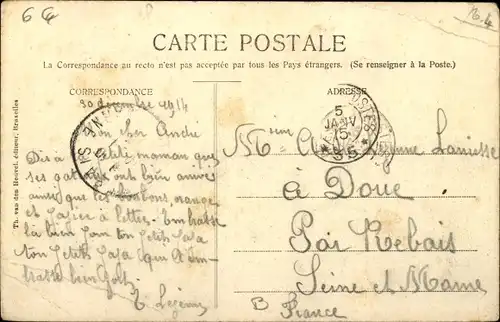 6
CARTE POSTALE
La Correspondance au recto n'est pas acceptée par tous les Pays étrangers. (Se renseigner à la Poste.)
CORRESPONDANCE
ADRESSE
30 décembre 1914
Mon cher André
Dis à ta petite maman que
ses gateaux ont bien arrivé
ainsi que les bonbons orange
et papier à lettre. Embrasse
la bien pour ton petit papa
ton petit papa qui t'em
brasse bien fort
Th. van den Heuvel, éditeur, Bruxelles
5
JANV
15
35
à Doue
Par Rebais
Seine et Marne
France
B